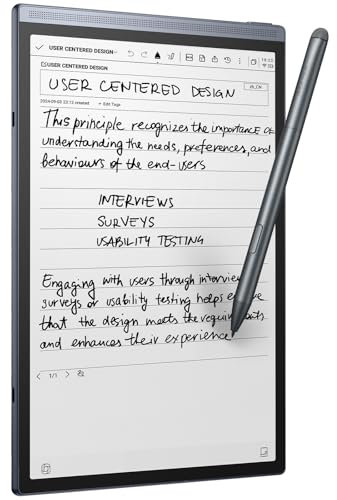 USER CENTERED DESIGN
USER CENTERED DESIGN
USER CENTERED DESIGN
2024-09-03 23:12 created + Edit Tags
This principle recognizes the importance of
understanding the needs, preferences, and
behaviours of the end-users
INTERVIEWS
SURVEYS
USABILITY TESTING
Engaging with users through
surveys or usability testing helps
that the design meets the
and enhances their experience
1/1